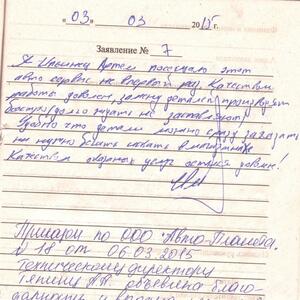 "03" 03 2015г.
Заявление № 7
Я Ильиных Артем посещаю этот
авто сервис не впервой раз. Качеством
работы доволен, замену деталей производят
быстро, долго ждать не заставляют.
Удобно что детали можно сразу заказать
не нужно искать в магазинах
Качеством оказанных услуг остался доволен!
Приказом по ООО "Авто-Планета"
№ 18 от 06.03.2015
техническому директору
объявлена благо-